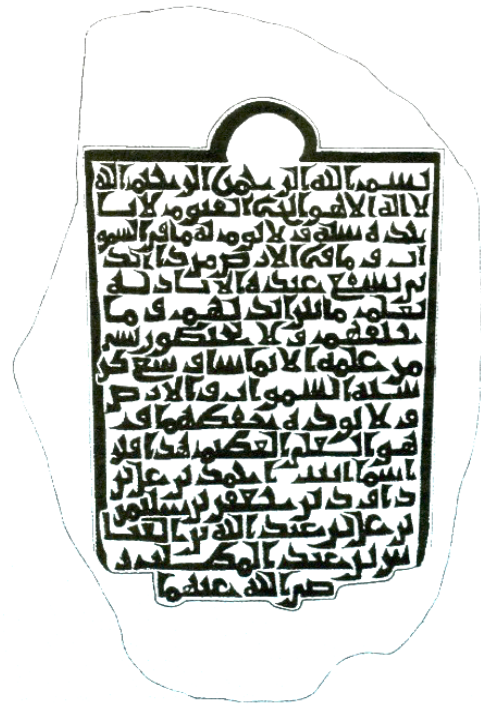 بسم الله الرحمن الرحيم الله
لا اله الا هو الحي القيوم لا تا
خذه سنة ولا نوم له ما في السمو
ات وما في الارض من ذا الذ
ي يشفع عنده الا باذنه
يعلم ما بين ايديهم وما
خلفهم ولا يحيطون بشي
من علمه الا بما شا وسع كر
سيه السموات والارض
ولا يوده حفظهما و
هو العلي العظيم هذا
اسما احمد بن علي بن
داود بن جعفر بن سليمن
بن علي بن عبد الله بن العبا
س بن عبد المطلب ر
ضي الله عنهما